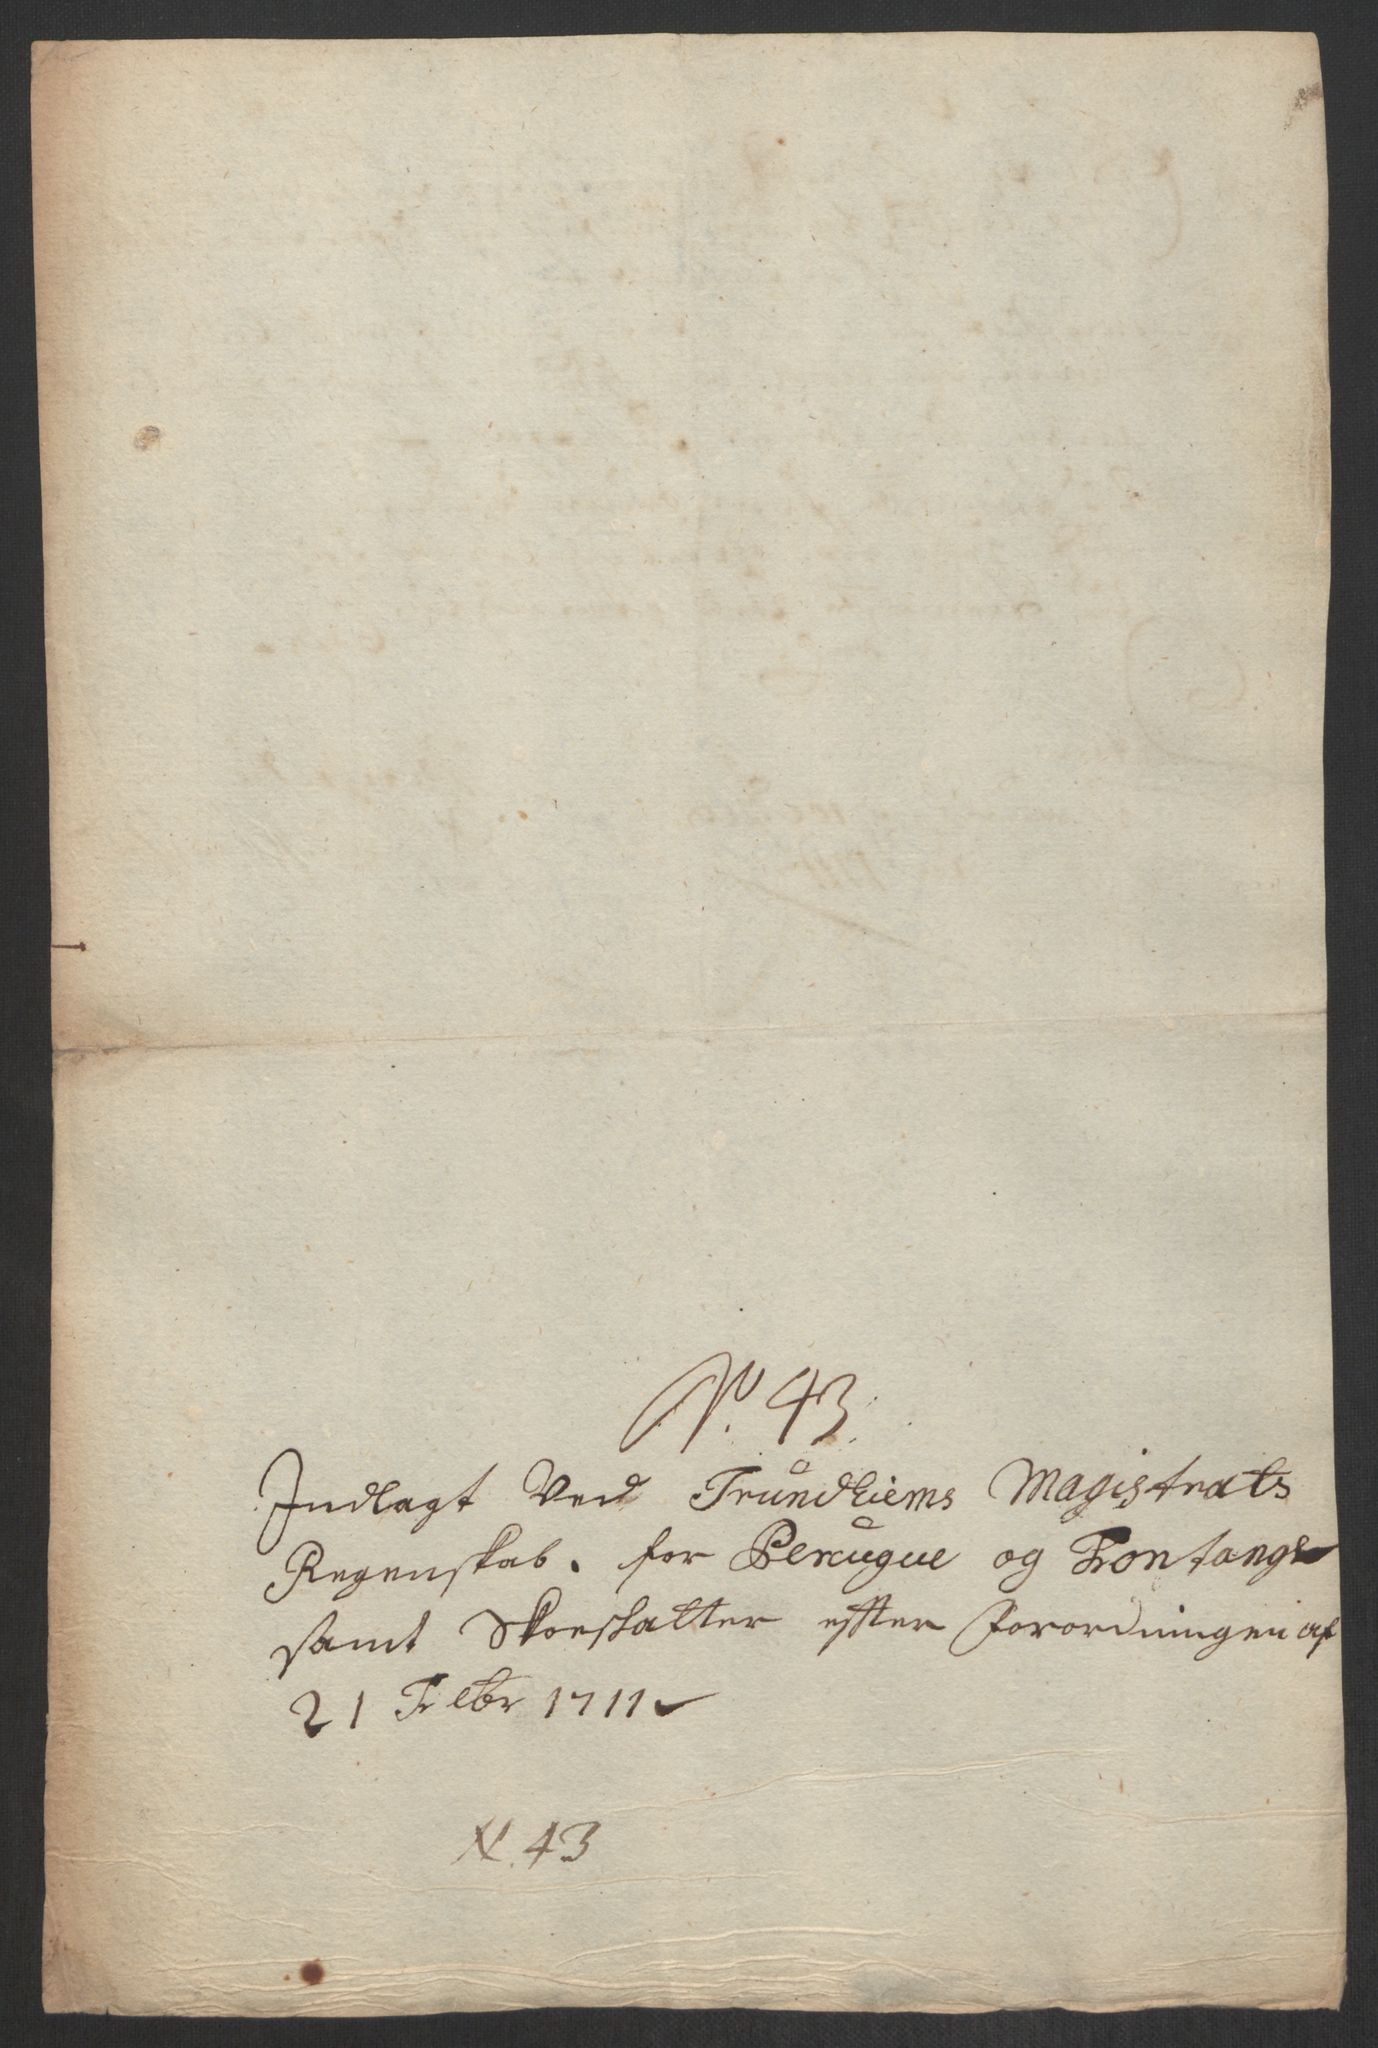 N. 43.
Indlagt Ved Trundhiems Magistrats
Regenskab. for Perugue og Fontange
samt Skoeskatter effter Forordningen af
21 Febr 1711
N. 43